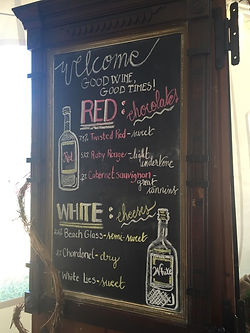 welcome
GOOD WINE,
GOOD TIMES!
RED: chocolates
Twisted Red-sweet
Ruby Rouge-light
undertone
Cabernet Sauvignon-
great
tannins
Red
WHITE: cheeses
Beach Glass-semi-sweet
Chardonel-dry
White Lies-sweet
White